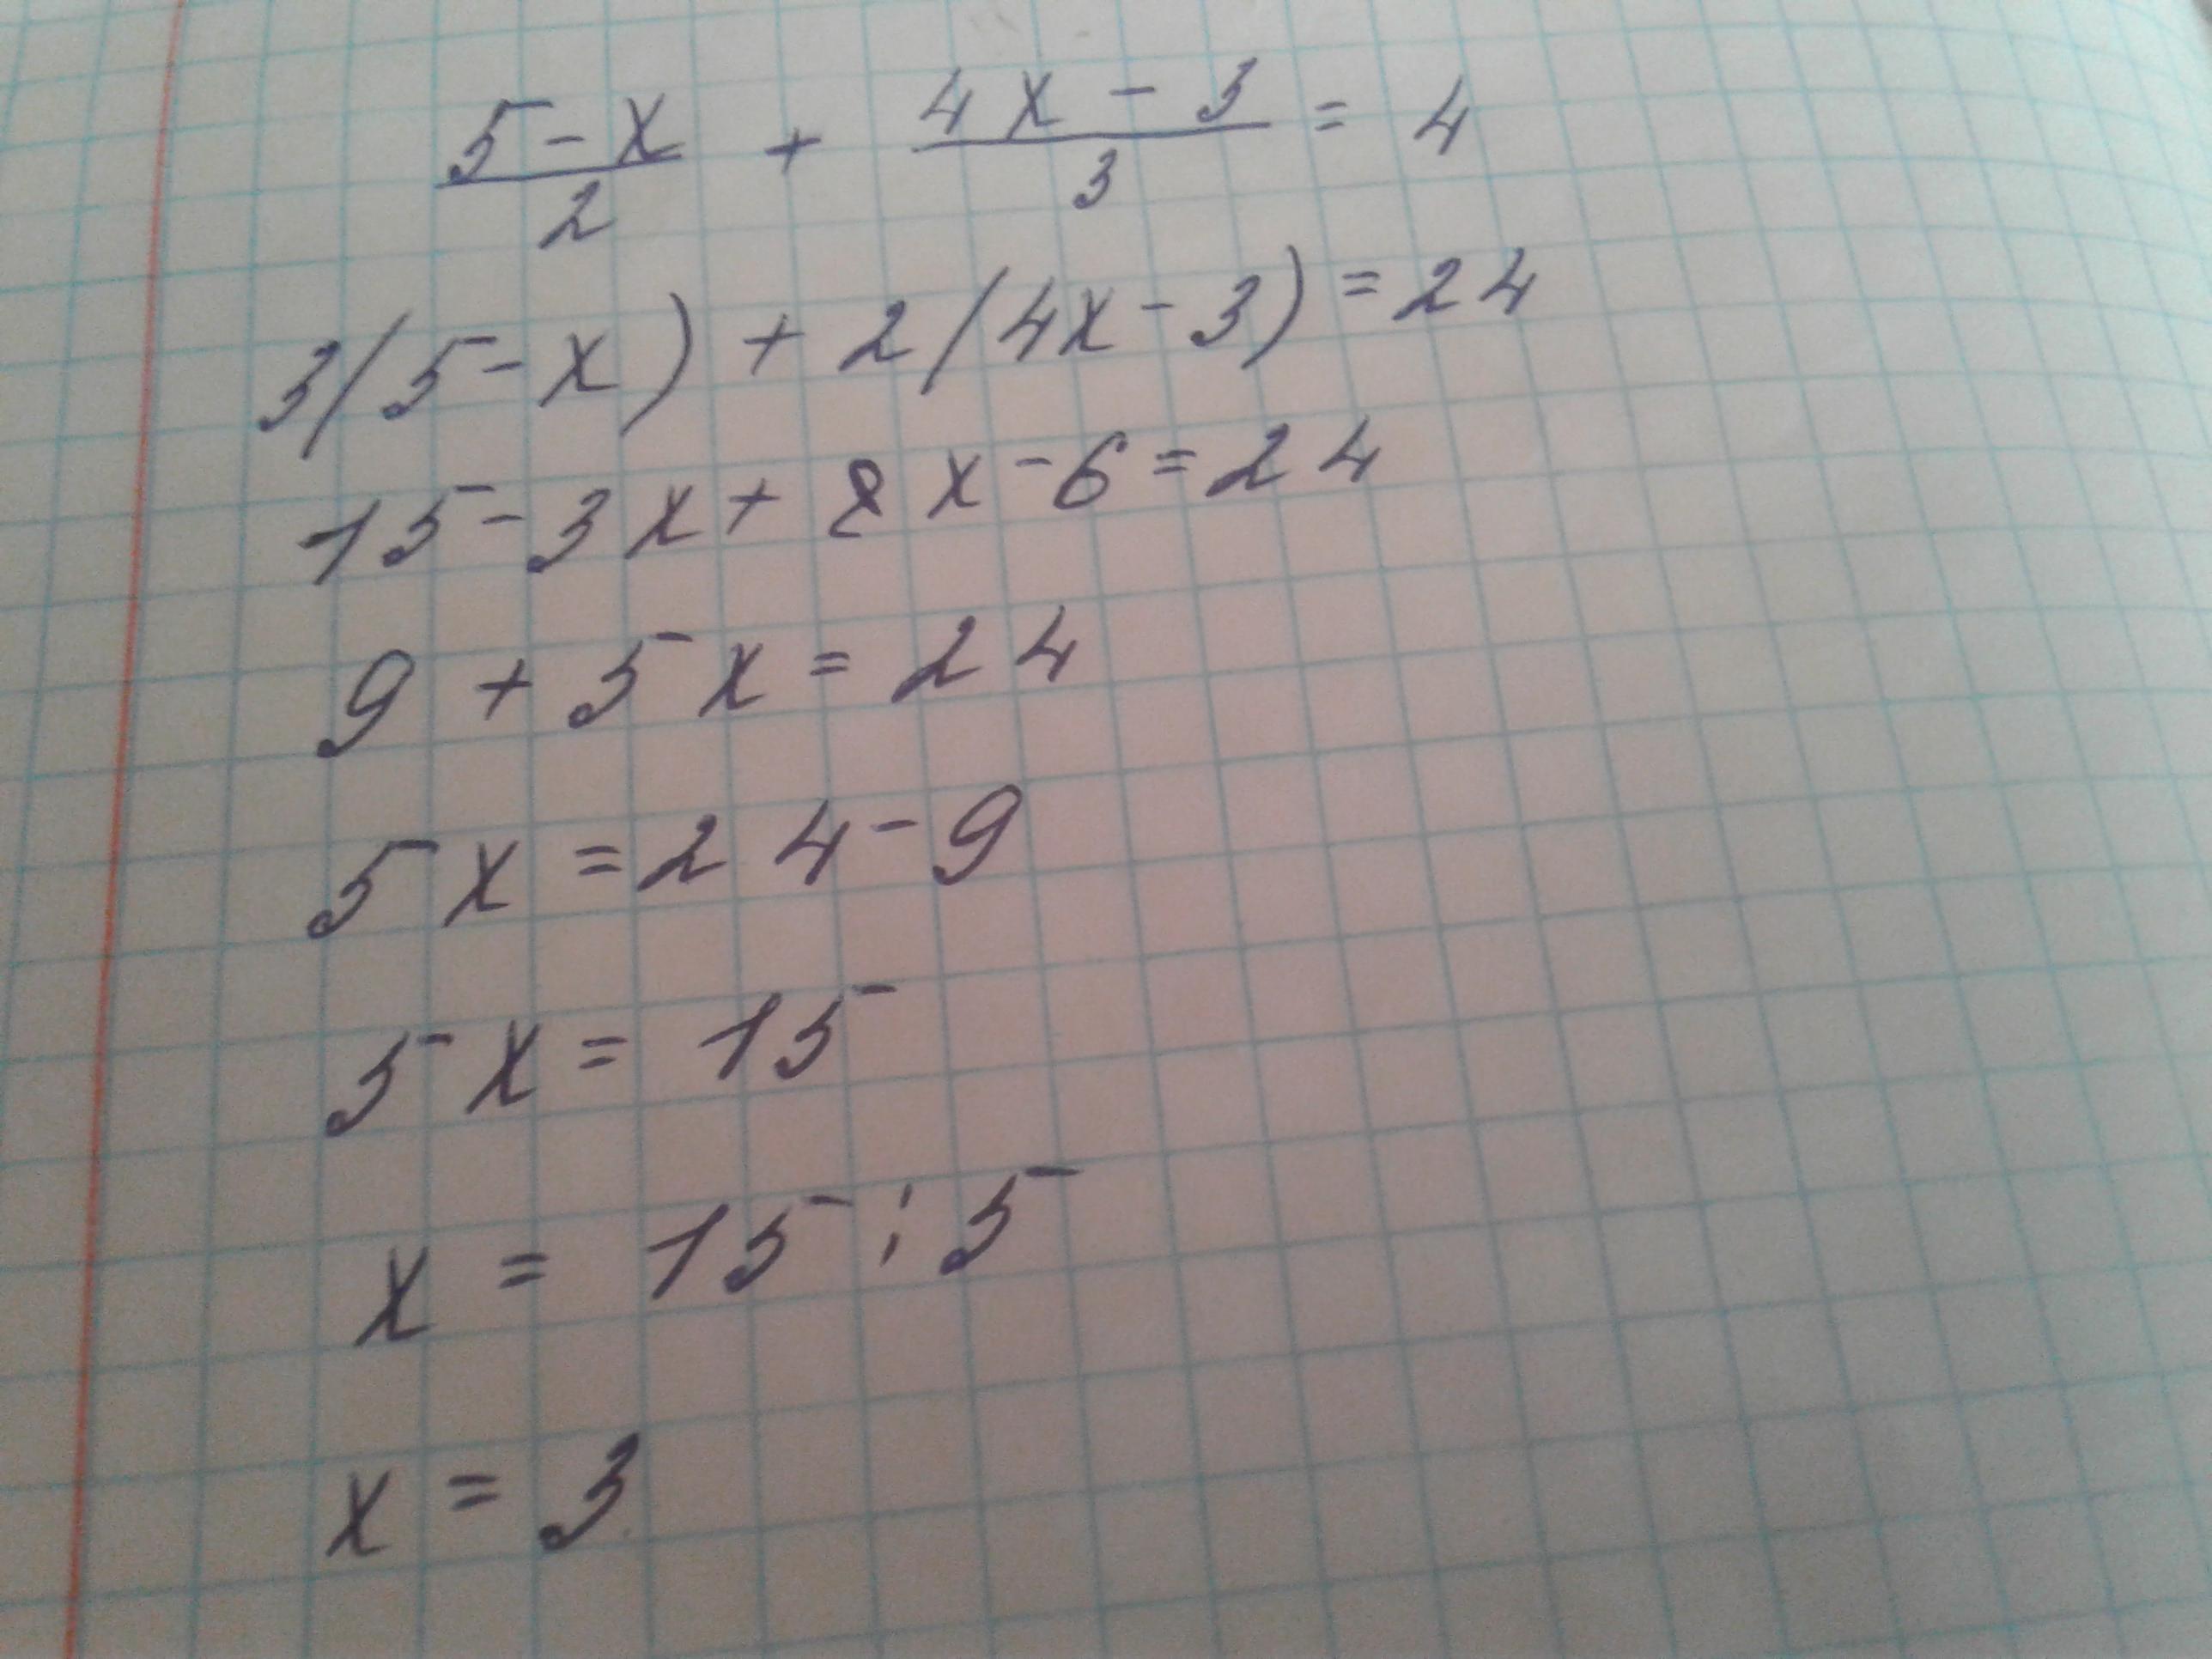 (5-x)/2 + (4x-3)/3 = 4
3(5-x) + 2(4x-3) = 24
15-3x+8x-6=24
9+5x=24
5x=24-9
5x=15
x=15:5
x=3